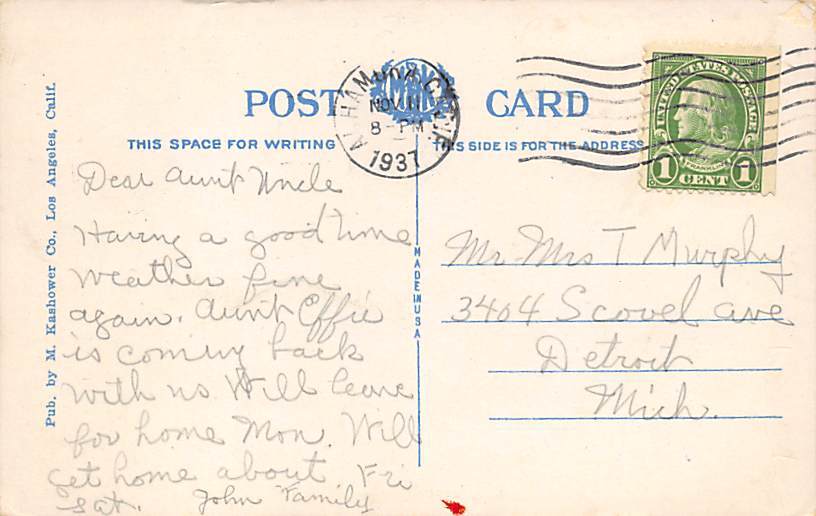 POST CARD
MK
ALHAMBRA CALIF.
NOV 11
8 - PM
1937
UNITED STATES POSTAGE
FRANKLIN
1 CENT 1
THIS SPACE FOR WRITING
THIS SIDE IS FOR THE ADDRESS
Pub. by M. Kashower Co., Los Angeles, Calif.
MADE IN USA
Dear Aunt Uncle
Having a good time
weather fine
again. Aunt Effie
is coming back
with us Will leave
for home Mon. Will
get home about Fri
Sat. John Family
Mr. Mrs T Murphy
3404 Scovel ave
Detroit
Mich.